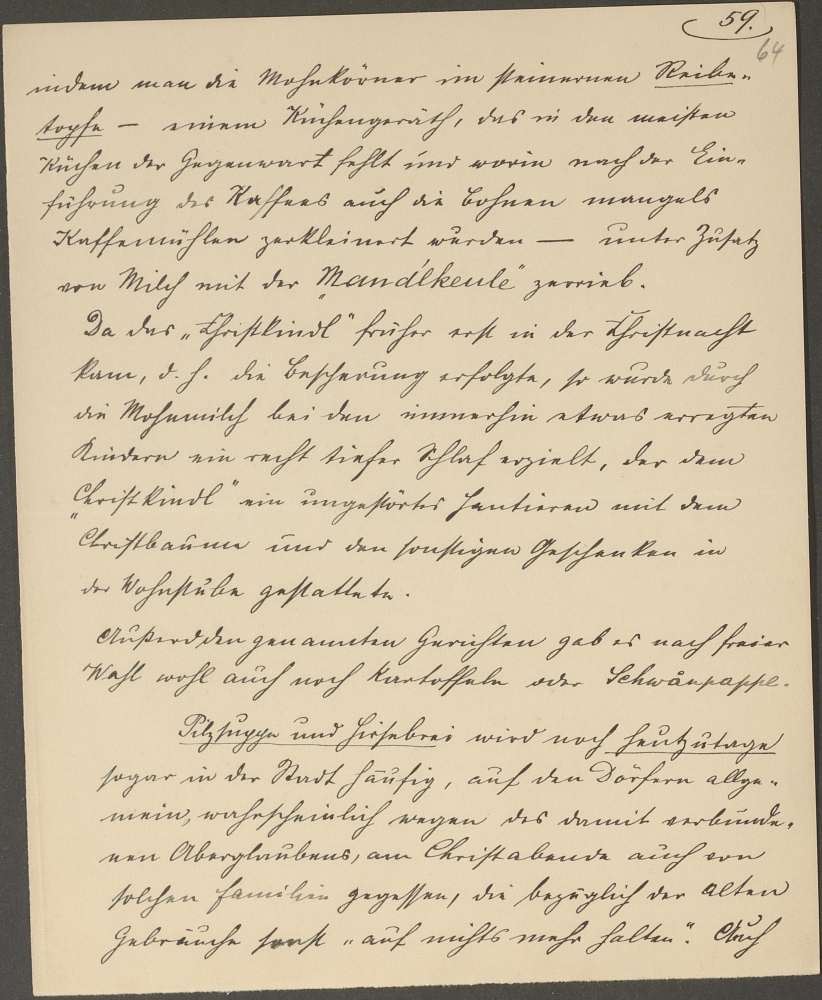 59.
64
indem man die Mohnkörner im steinernen Reibe-
topfe — einem Küchengeräth, das in den meisten
Küchen der Gegenwart fehlt und worin nach der Ein-
führung des Kaffees auch die Bohnen mangels
Kaffeemühlen zerkleinert wurden — unter Zusatz
von Milch mit der „Mandlkeule" zerrieb.
Da das „Christkindl" früher erst in der Christnacht
kam, d. h. die Bescherung erfolgte, so wurde durch
die Mohnmilch bei den immerhin etwas erregten
Kindern ein recht tiefer Schlaf erzielt, der dem
„Christkindl" ein ungestörtes Hantieren mit dem
Christbaume und den sonstigen Geschenken in
der Wohnstube gestattete.
Außer den genannten Gerichten gab es nach freier
Wahl wohl auch noch Kartoffeln oder Schwånpappe.
Pilzsuppe und Hirsebrei wird noch heutzutage
sogar in der Stadt häufig, auf den Dörfern allge-
mein, wahrscheinlich wegen des damit verbunde-
nen Aberglaubens, am Christabende auch von
solchen Familien gegessen, die bezüglich der alten
Gebräuche sonst „auf nichts mehr halten". Auch